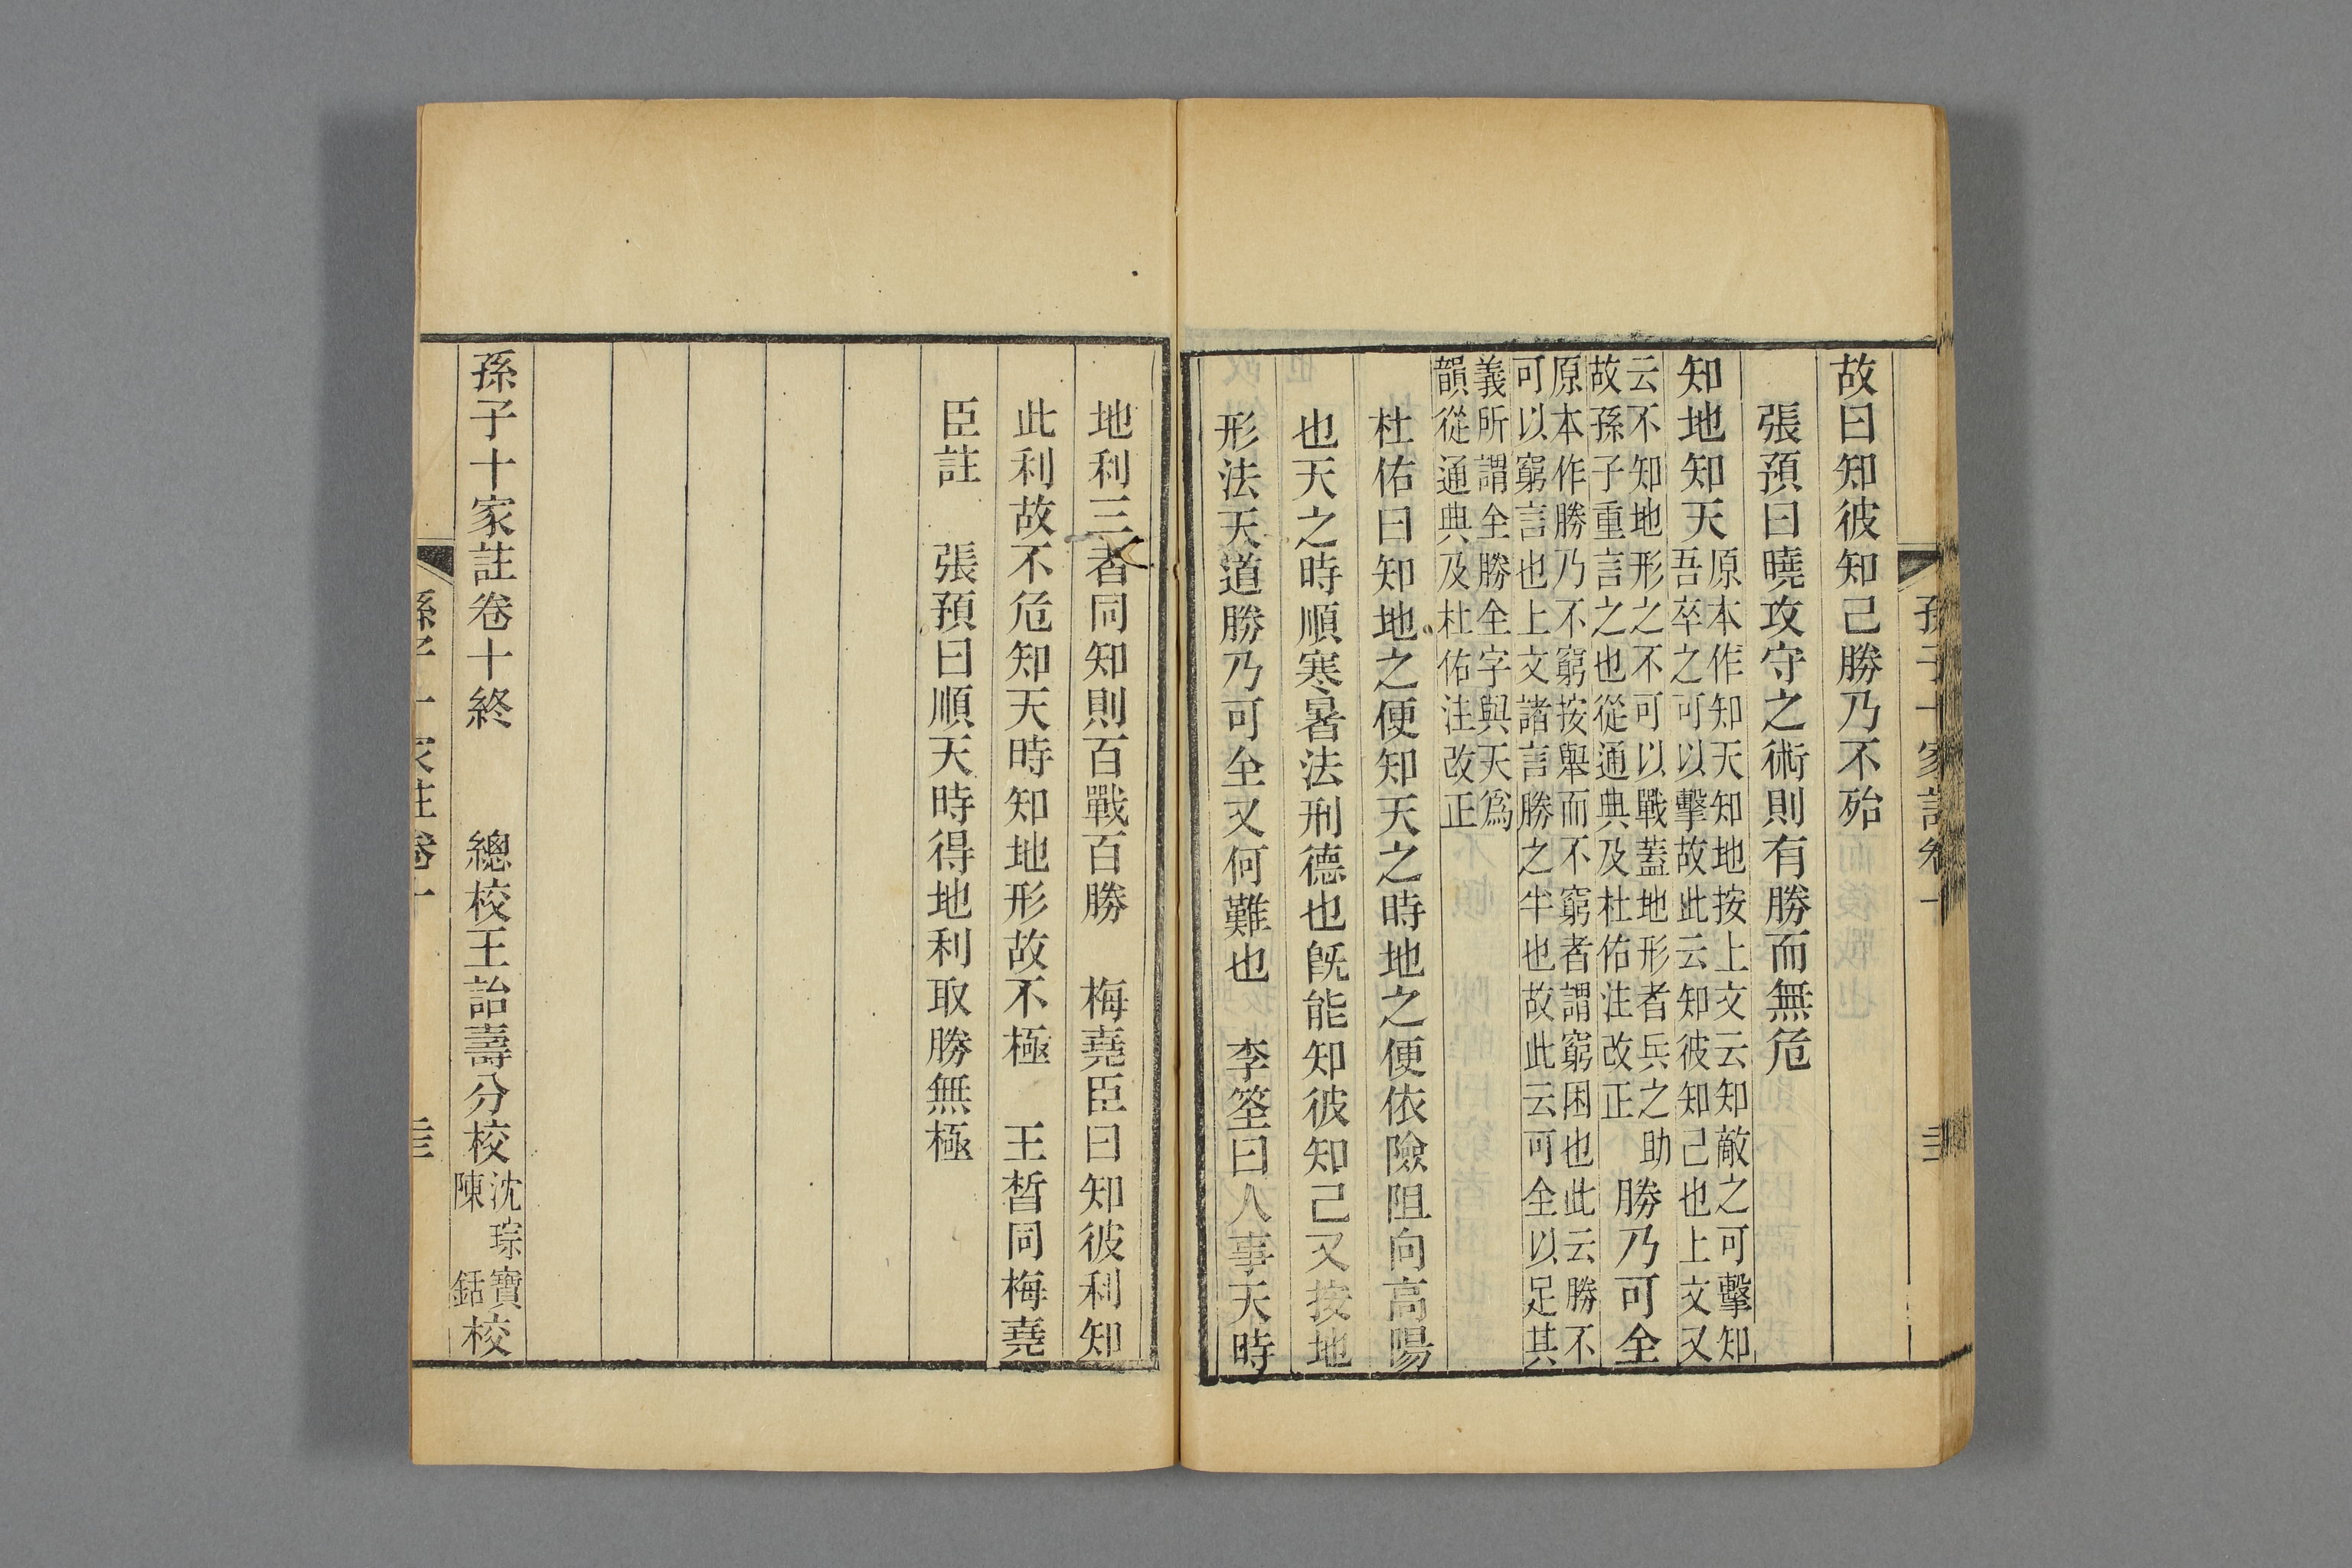 孫子十家註卷十
故曰知彼知己勝乃不殆
張預曰曉攻守之術則有勝而無危
知地知天
原本作知天知地按上文云知敵之可擊知
吾卒之可以擊故此云知彼知己也上文又
云不知地形之不可以戰蓋地形者兵之助
故孫子重言之也從通典及杜佑注改正
勝乃可全
原本作勝乃不窮按舉而不窮者謂窮困也此云勝不
可以窮言也上文諸言勝之半也故此云可全以足其
義所謂全勝全字與天爲
韻從通典及杜佑注改正
杜佑曰知地之便知天之時地之便依險阻向高陽
也天之時順寒暑法刑德也旣能知彼知己又按地
形法天道勝乃可全又何難也　李筌曰人事天時
地利三者同知則百戰百勝　梅堯臣曰知彼利知
此利故不危知天時知地形故不極　王晳同梅堯
臣註　張預曰順天時得地利取勝無極
孫子十家註卷十終　總校王詒壽分校
沈琮寶
陳銛
校
孫子十家註卷十